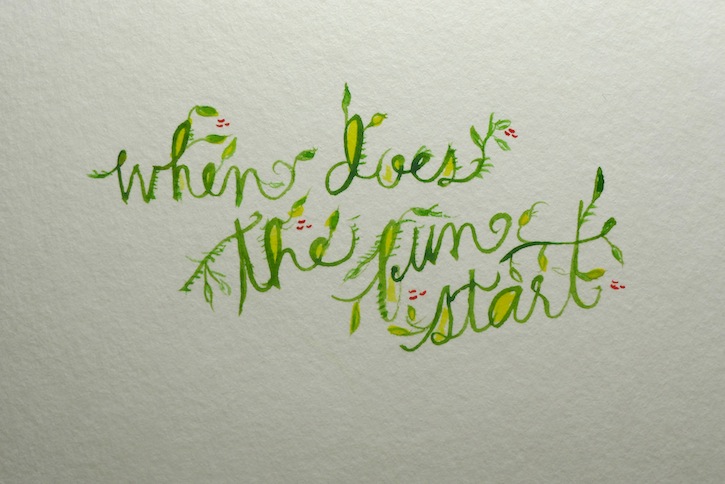 when does
the fun
start